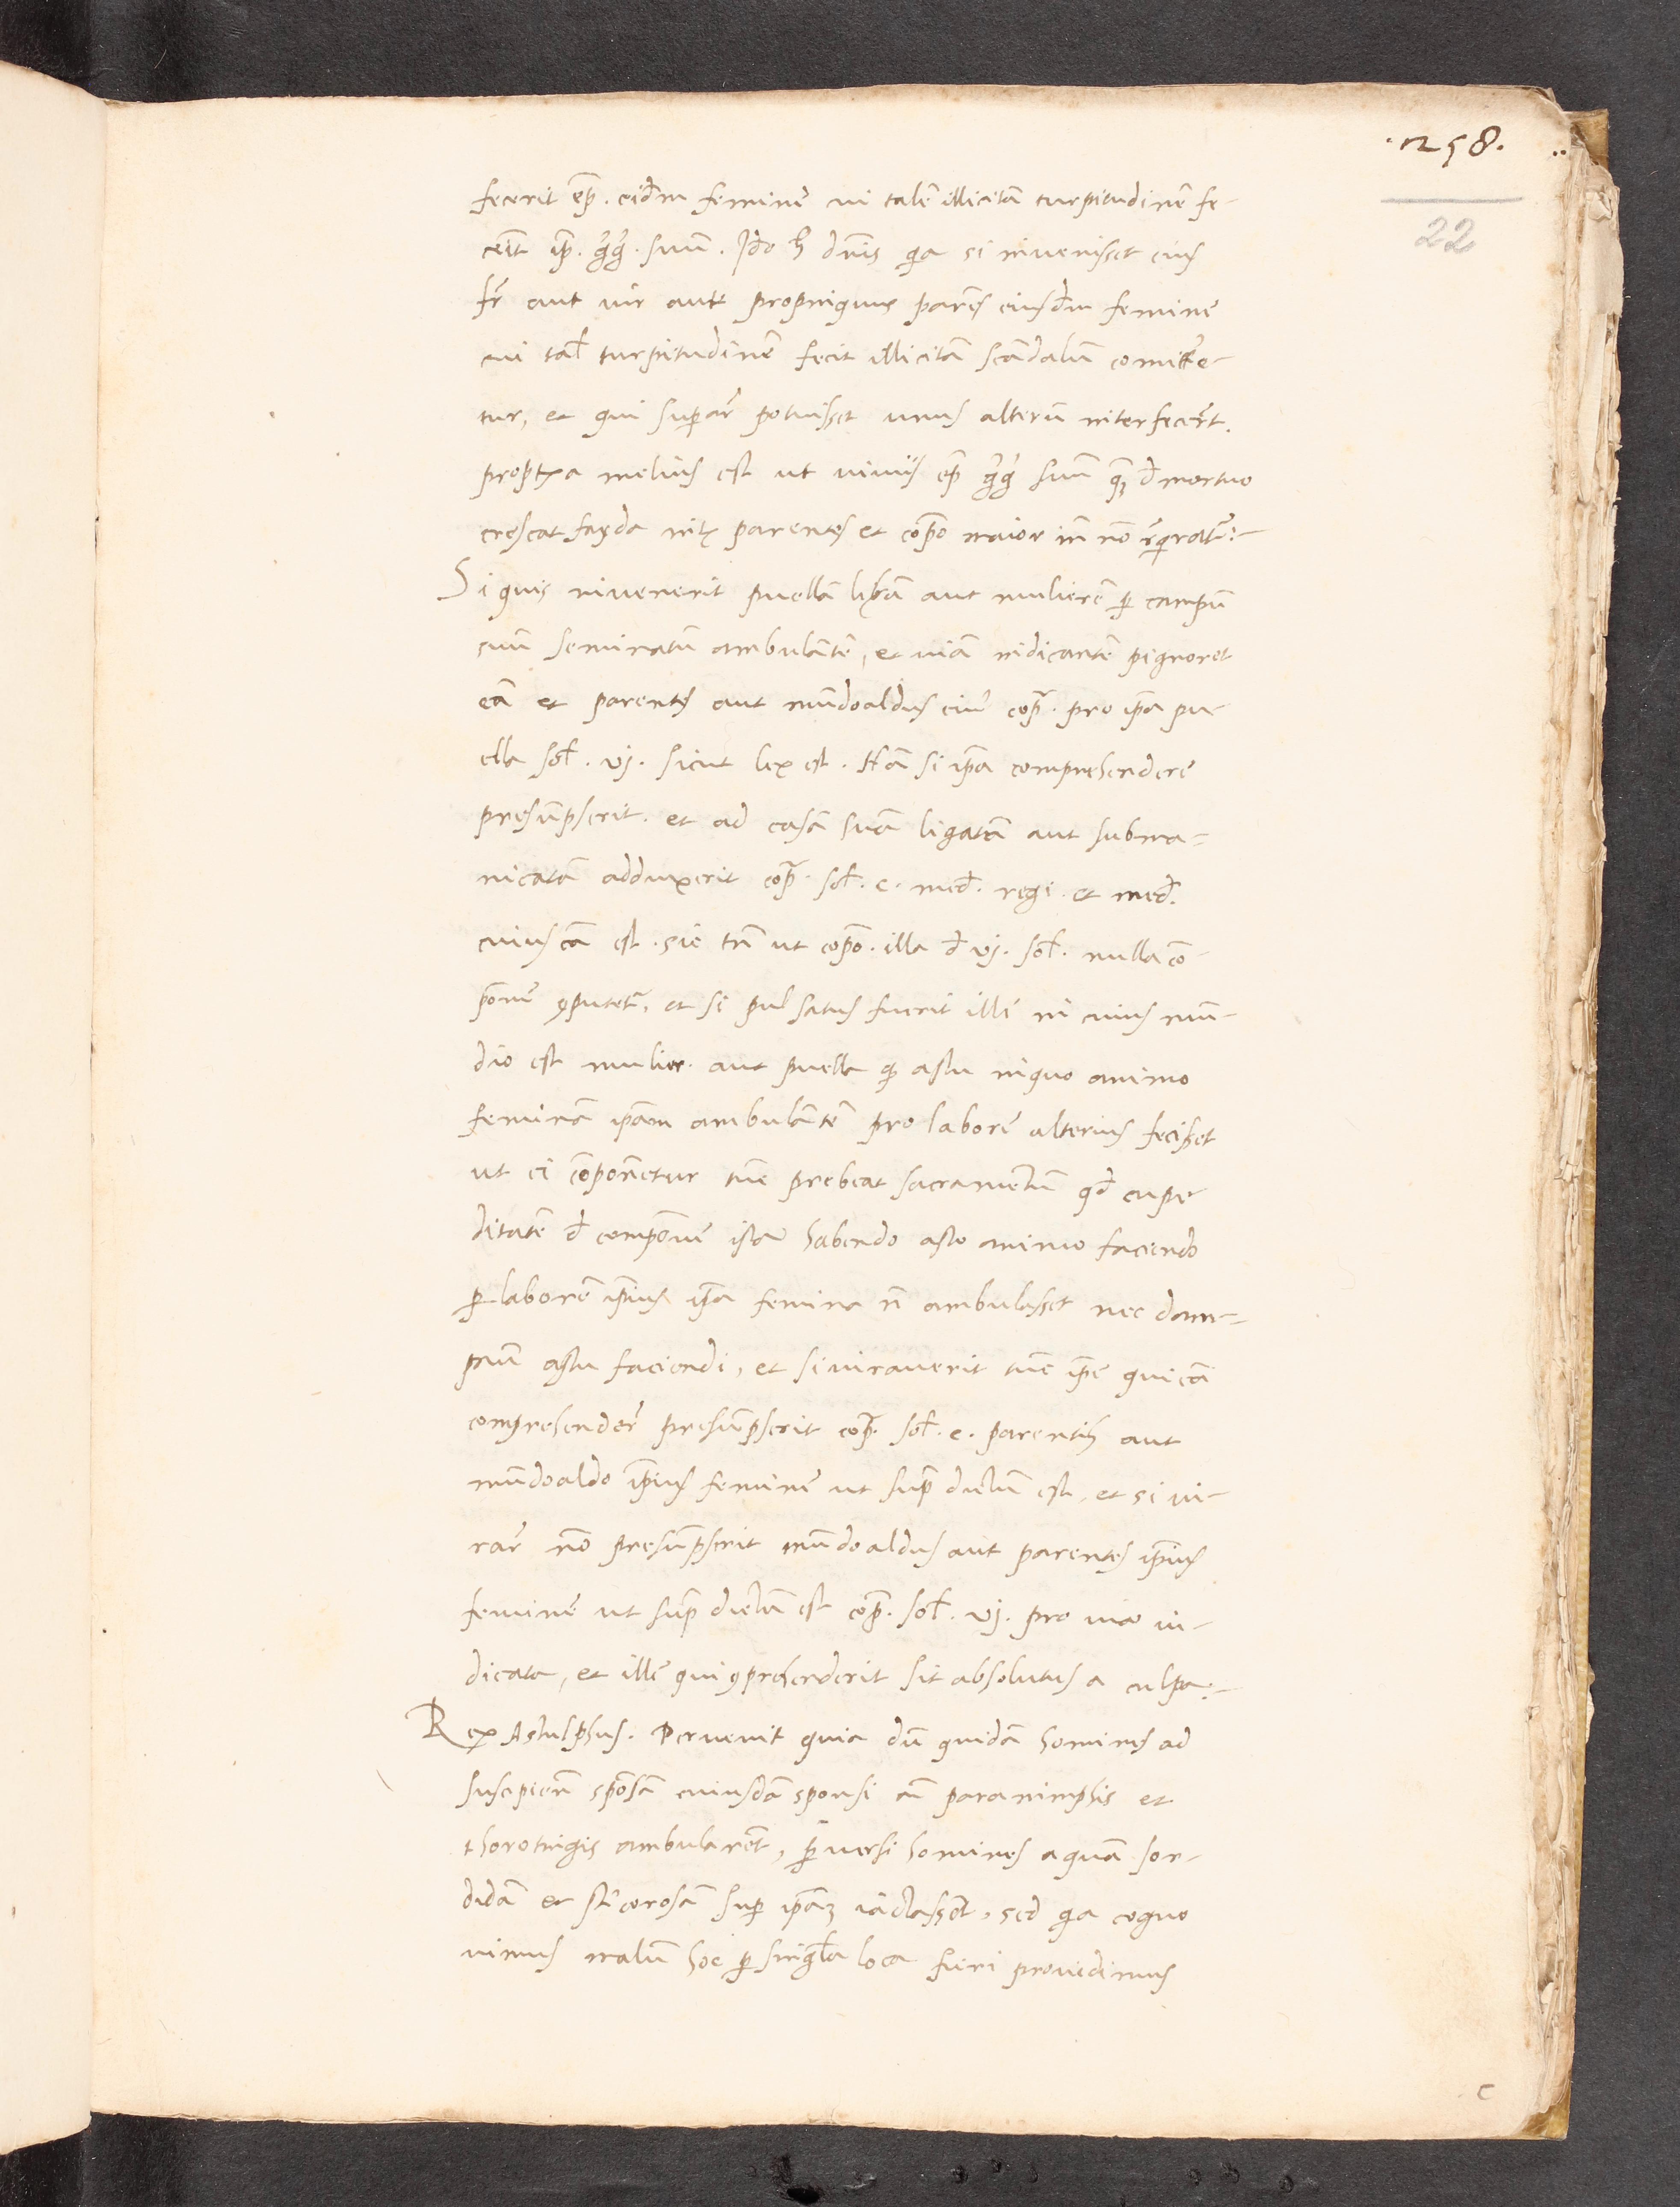 .1258.
22
fecerit cōp̄. eidem feminę cui talē illicitā turpitudinē fe-
cerit ip̄. g̃g̃. suum. Ideo h̄ dn̄is q̄a si invenisset eius
fr̄ aut vir aut propinquus parēs eiusdem feminę
cui tal̄ turpitudinē fecit illicitā scandalū comitte-
tur, et qui superar̄ potuisset unus alterū interfecer̄t.
proptᵉrea melius est ut vivus cōp̄ g̃g̃ suū quā d̄ mortuo
crescat fayda intᵉ parentes et cōpō maior in nō reqirat̄:-
Si quis invenerit puellā libᵉrā aut mulierē p̄ campū
suū seminatū ambulātē, et viā indicantē pignoret
eā et parentes aut mūdoaldus eius cōp̄. pro ip̄a pu-
ella sol̄. vj. sicut lex est. Nā si ip̄a comprehenderē
presūpserit. et ad casā suā ligatā aut subma-
nicatā adduxerit cōp̄. sol̄. c. med̄. regi et med̄.
cuius cā est. sic tn̄ ut cōpō. illa d̄ vj. sol̄. nulla cō-
p̄onē ꝯputet̄, et si pulsatus fuerit illę in cuius mū-
dio est mulier. aut puella q̄ astu iniquo animo
feminā ip̄am ambulātē pro laborē alterius fecisset
ut ei cōponeretur tūc prebeat sacramētū qd̄ cupe
ditatē d̄ compōnē istā habendo asto animo faciendo
p̄ laborē ip̄ius ip̄a femina n̄ ambulasset nec dam-
pnū astu faciendi, et si iuraverit tūc ip̄e qui eā
comprehender̄ presūpserit cōp̄. sol̄. c. parentibꝫ aut
mūdoaldo ip̄ius feminę ut supᵃ dictū est, et si iu-
rar̄ nō presūpserit mūdoaldus aut parentes ip̄ius
feminę ut supᵃ dictū est cōp̄. sol̄. vj. pro via in-
dicata, et illę qui ꝯprehenderit sit absolutus a culpa:-
Rex Astulphus. Pervenit quia dū quidā homines ad
suscipien̄ spōsā cuiusdā sponsi cū paranimphis et
throtingis ambularent, p̄versi homines aquā sor-
didā et stᵉcorosā sup̄ ip̄aꝫ iactassēt, sed q̄a cogno
vimus malū hoc p̄ singᵘla loca fieri providimus
c